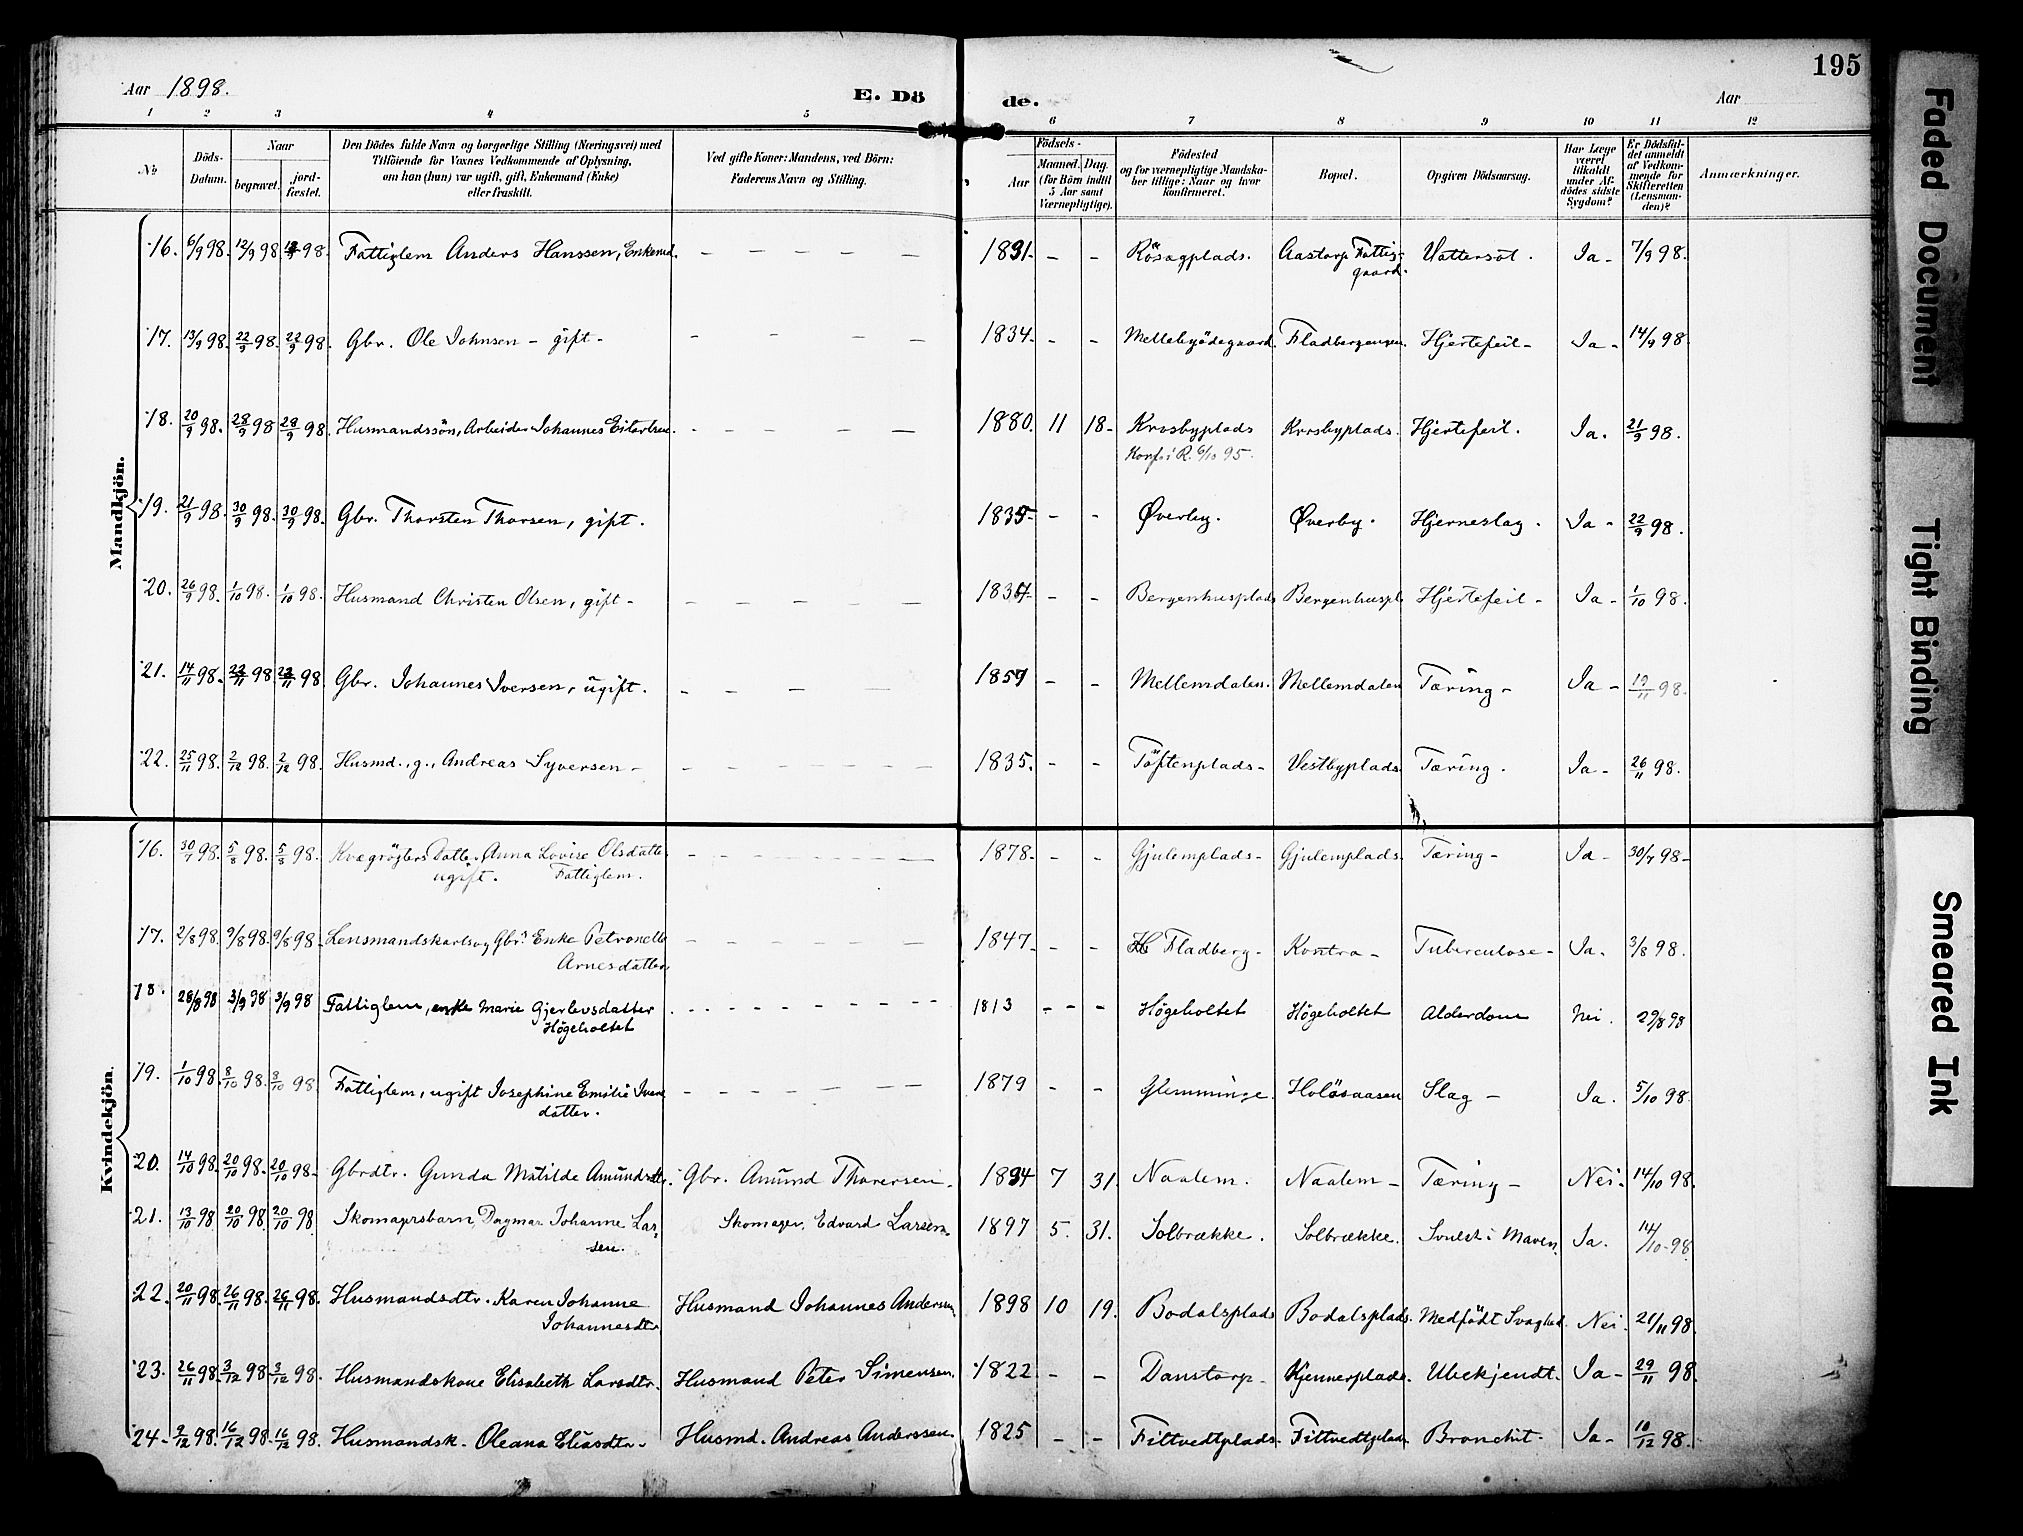 Aar 1898.
E. Dö
de.
Aar
195
1 2 3 4 5 6 7 8 9 10 11 12
No
Döds-
Datum.
Naar
begravet.
jord-
fæstet.
Den Dödes fulde Navn og borgerlige Stilling (Næringsvei) med
Tilföiende for Voxnes Vedkommende af Oplysning,
om han (hun) var ugift, gift, Enkemand (Enke)
eller fraskilt.
Ved gifte Koner: Mandens, ved Börn:
Faderens Navn og Stilling.
Födsels-
Aar
Maaned.
Dag.
(for Börn indtil
5 Aar samt
Værnepligtige).
Födested
og for værnepligtige Mandska-
ber tillige: Naar og hvor
konfirmeret.
Bopæl.
Opgiven Dödsaarsag.
Har Læge
været
tilkaldt
under Af-
dödes sidste
Sygdom?
Er Dödsfal-
det anmeldt
af Vedkom-
mende for
Skifteretten
(Lensman-
den)?
Anmærkninger.
Mandkjön.
16. 6/9 98. 12/9 98 12/9 98. Fattiglem Anders Hanssen, Enkemd. - - - - - 1831. - - Rösægplads. Aastorp Fattig- Vattersot. Ja - 7/9 98.
gaard.
17. 13/9 98. 22/9 98. 22/9 98. Gbr. Ole Johnsen - gift - - - - - 1834. - - Mellebyödegaard. Hjertefeil - Ja - 14/9 98
18. 20/9 98. 28/9 98 28/9 98. Husmandssön, Arbeider Johannes - - - - 1880. 11 18 - Krosbyplads Krosbyplads. Hjertefeil. Ja. 21/9 98.
Konf. i R. 6/10 95.
19. 21/9 98. 30/9 98. 30/9 98. Gbr. Thorsten Thorsen, gift. 1835 - - - Øverby. Øverby. Hjerneslag. Ja - 22/9 98.
20. 26/9 98. 1/10 98. 1/10 98. Husmand Christen Olsen, gift - - - - - - - Bergenhusplads Bergenhuspl. Hjertefeil - Ja - 1/10 98.
21. 14/11 98. 22/11 98 22/11 98 Gbr. Johannes Iversen, ugift. - - - - 1857 - - Mellemdalen. Mellemdalen Tæring - Ja - 19/11 98.
22. 25/11 98. 2/12 98. 2/12 98. Husmd., g., Andreas Syversen - - - - - - - 1835. - - Töftenplads - Vestbyplads. Tæring. Ja - 26/11 98.
Kvindekjön.
16. 30/7 98. 5/8 98. 5/8 98. Datter Anna Lovise Olsdatter - - - - - - 1878 - - - Gjulemplads - Gjulemplads. Tæring - Ja - 30/7 98 -
ugift. Fattiglem.
17. 2/8 98. 9/8 98. 9/8 98. Lensmandskarls og Gbr's Enke Petronelle - - - - - - 1847. - - Fladberg - Kontra - Tuberculose - Ja. 3/8 98.
Arnesdatter
18. 28/8 98 3/9 98 3/9 98 Fattiglem, enke Marie Gjerlevsdatter - - - - - - 1813 - - - Högeholtet Högeholtet Alderdom Nei. 29/8 98
Högeholtet
19. 1/10 98. 8/10 98. 8/10 98 Fattiglem, ugift Josephine Emilie Ivers - - - - - 1879 - - Glemminge. Holösaasen Slag - Ja. 5/10 98.
datter.
20. 14/10 98. 20/10 98. 20/10 98 - Gbrdtr. Gunda Matilde Amundsdtr. Gbr. Amund Thoresen. 1894 7 31. Naalem. Naalem - Tæring - Nei. 14/10 98.
21. 13/10 98 20/10 98. 20/10 98. Skomagersbarn, Dagmar Johanne Lar- Skomager. Edvard Larsen. 1897 5. 31. Solbrække. Solbrække. Ja. 14/10 98
sen.
22. 20/11 98. 26/11 98. 26/11 98. Husmandsdtr. Karen Johanne Husmand Johannes Andersen, 1898 10 19. Bodalsplads Bodalsplads. Medfødt Svaghed. Nei. 21/11 98.
Johannesdtr
23. 26/11 98. 3/12 98 3/12 98. Husmandskone Elisabeth Larsdtr. Husmand Peter Simensen. 1822 - - Danstorp - Kjennerplads. Ubekjendt. Ja - 29/11 98.
24 - 9/12 98. 16/12 98. 16/12 98. Husmandsk. Oleana Eliasdtr - Husmd. Andreas Anderssen. 1825 - - Fittvedtplads. Fittvedtplads. Bronchit. Ja - 10/12 98.
Faded Document
Tight Binding
Smeared Ink